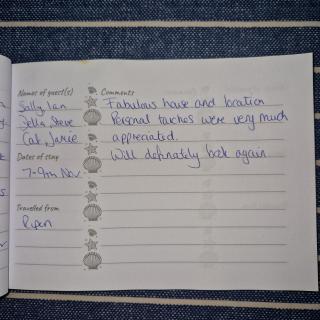 Names of guest(s)
Sally, Ian
Della, Steve
Cat, Jamie
Dates of stay
7-9th Nov
Travelled from
Ripon
Comments
Fabulous house and location
Personal touches were very much
appreciated.
Will definately book again